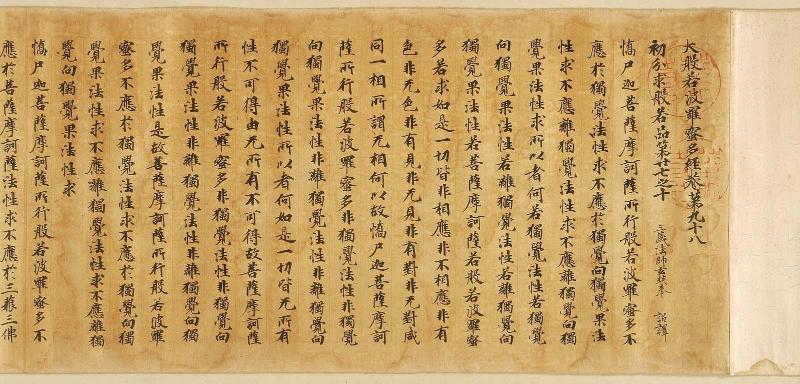 大般若波羅蜜多經卷第九十八
初分求般若品第廿七之十 三藏法師玄奘奉 詔譯
憍尸迦菩薩摩訶薩所行般若波羅蜜多不
應於獨覺法性求不應於獨覺向獨覺果法
性求不應離獨覺法性求不應離獨覺向獨
覺果法性求所以者何若獨覺法性若獨覺
向獨覺果法性若離獨覺法性若離獨覺向
獨覺果法性若菩薩摩訶薩若般若波羅蜜
多若求如是一切皆非相應非不相應非有
色非无色非有見非无見非有對非无對咸
同一相所謂无相何以故憍尸迦菩薩摩訶
薩所行般若波羅蜜多非獨覺法性非獨覺
向獨覺果法性非離獨覺法性非離獨覺向
獨覺果法性所以者何如是一切皆无所有
性不可得由无所有不可得故菩薩摩訶薩
所行般若波羅蜜多非獨覺法性非獨覺向
獨覺果法性非離獨覺法性非離獨覺向獨
覺果法性是故菩薩摩訶薩所行般若波羅
蜜多不應於獨覺法性求不應於獨覺向獨
覺果法性求不應離獨覺法性求不應離獨
覺向獨覺果法性求
憍尸迦菩薩摩訶薩所行般若波羅蜜多不
應於菩薩摩訶薩法性求不應於三藐三佛